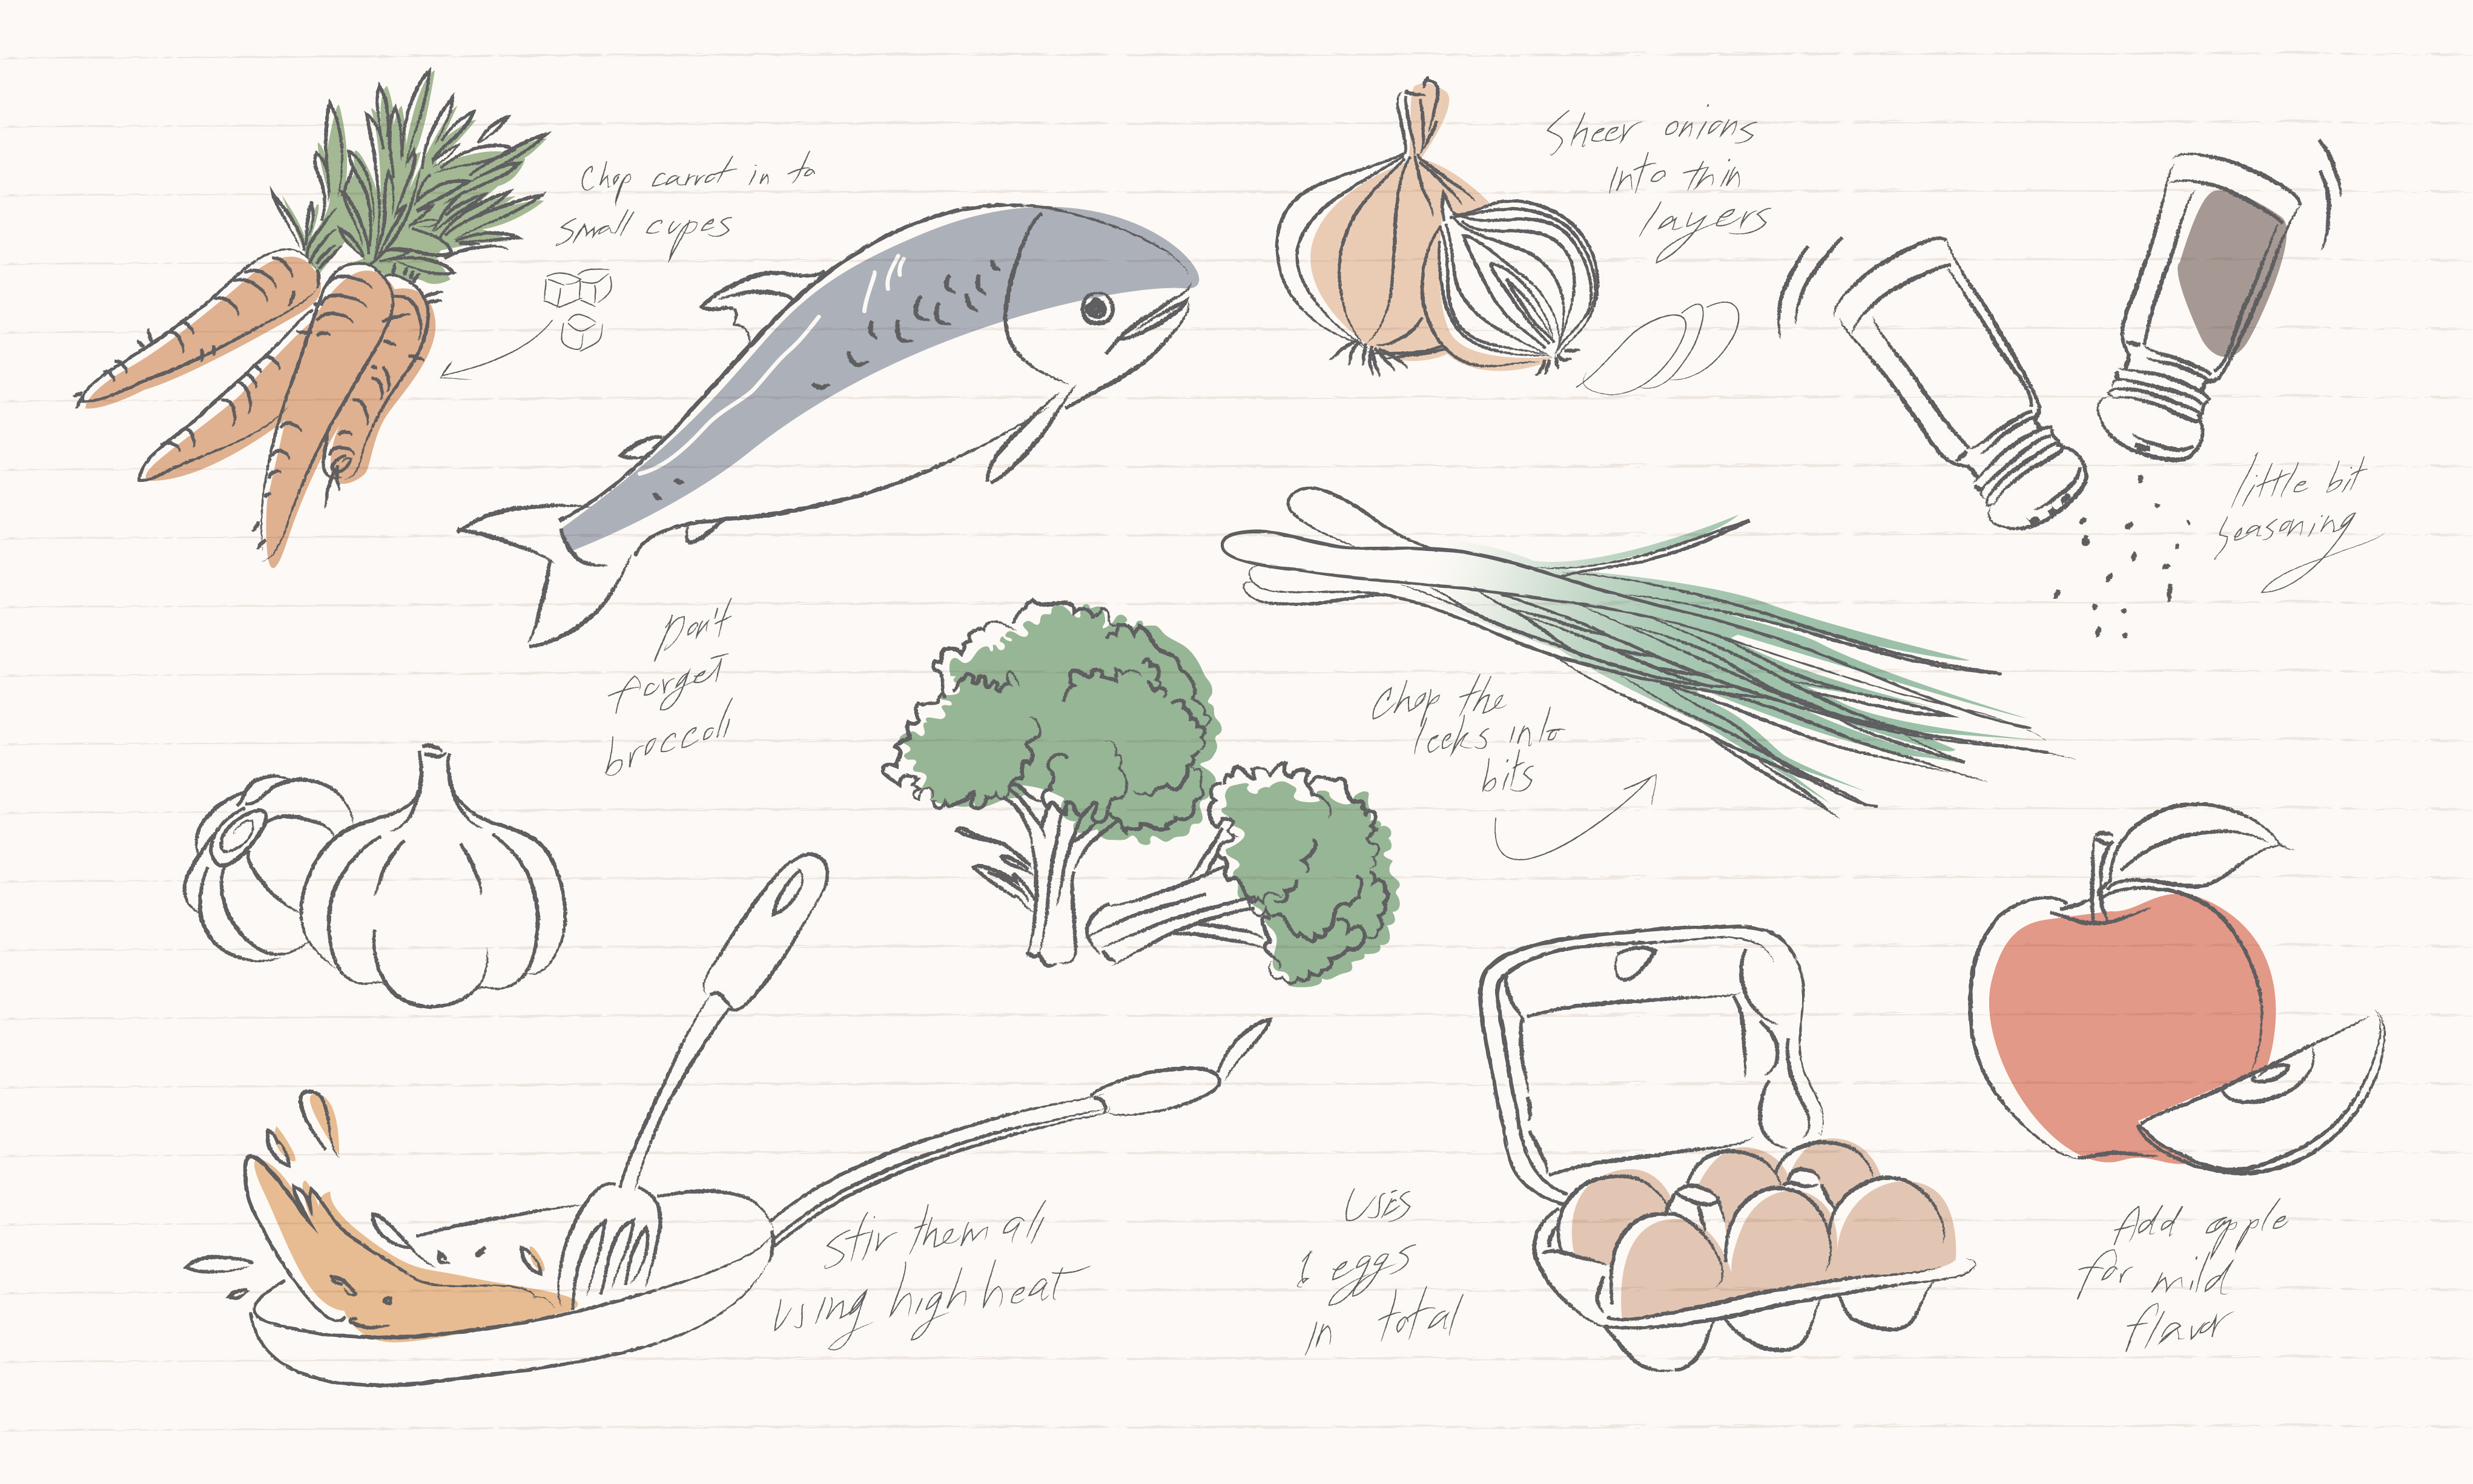 Chop carrot in to
small cupes
Sheer onions
Into thin
layers
little bit
seasoning
Don't
forget
broccoli
Chop the
leeks into
bits
Stir them all
using high heat
Uses
6 eggs
in total
Add apple
for mild
flavor